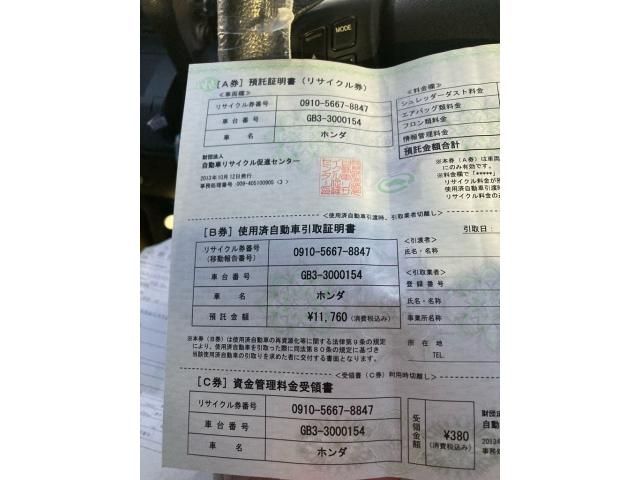 MODE
[A券] 預託証明書 (リサイクル券)
<車両欄>
リサイクル券番号 0910-5667-8847
車台番号 GB3-3000154
車名 ホンダ
<料金欄>
シュレッダーダスト料金
エアバッグ類料金
フロン類料金
情報管理料金
預託金額合計
財団法人
自動車リサイクル促進センター
2013年10月12日発行
※本券 (A券) は車両
にのみ有効です。
※料金欄で「*****」
リサイクル料金が
使用済自動車引渡時
リサイクル料金の
<使用済自動車引渡時、引取業者切離し>
[B券] 使用済自動車引取証明書
引取日:
リサイクル券番号
(移動報告番号) 0910-5667-8847
車台番号 GB3-3000154
車名 ホンダ
預託金額 ¥11,760 (消費税込み)
<引渡者>
氏名・名称
<引取業者>
登録番号
氏名・名称
事業所名称
所在地
TEL.
※本券 (B券) は使用済自動車の再資源化等に関する法律第9条の規定
により、使用済自動車を引取った際に同法第80条の規定に基づき
当該使用済自動車の引取りを求めた者に交付する書面となります。
<受領書 (C券) 利用時切離し>
[C券] 資金管理料金受領書
リサイクル券番号 0910-5667-8847
車台番号 GB3-3000154
車名 ホンダ
受領金額 ¥380
(消費税込み)
財団法
自動
2013年
事務処